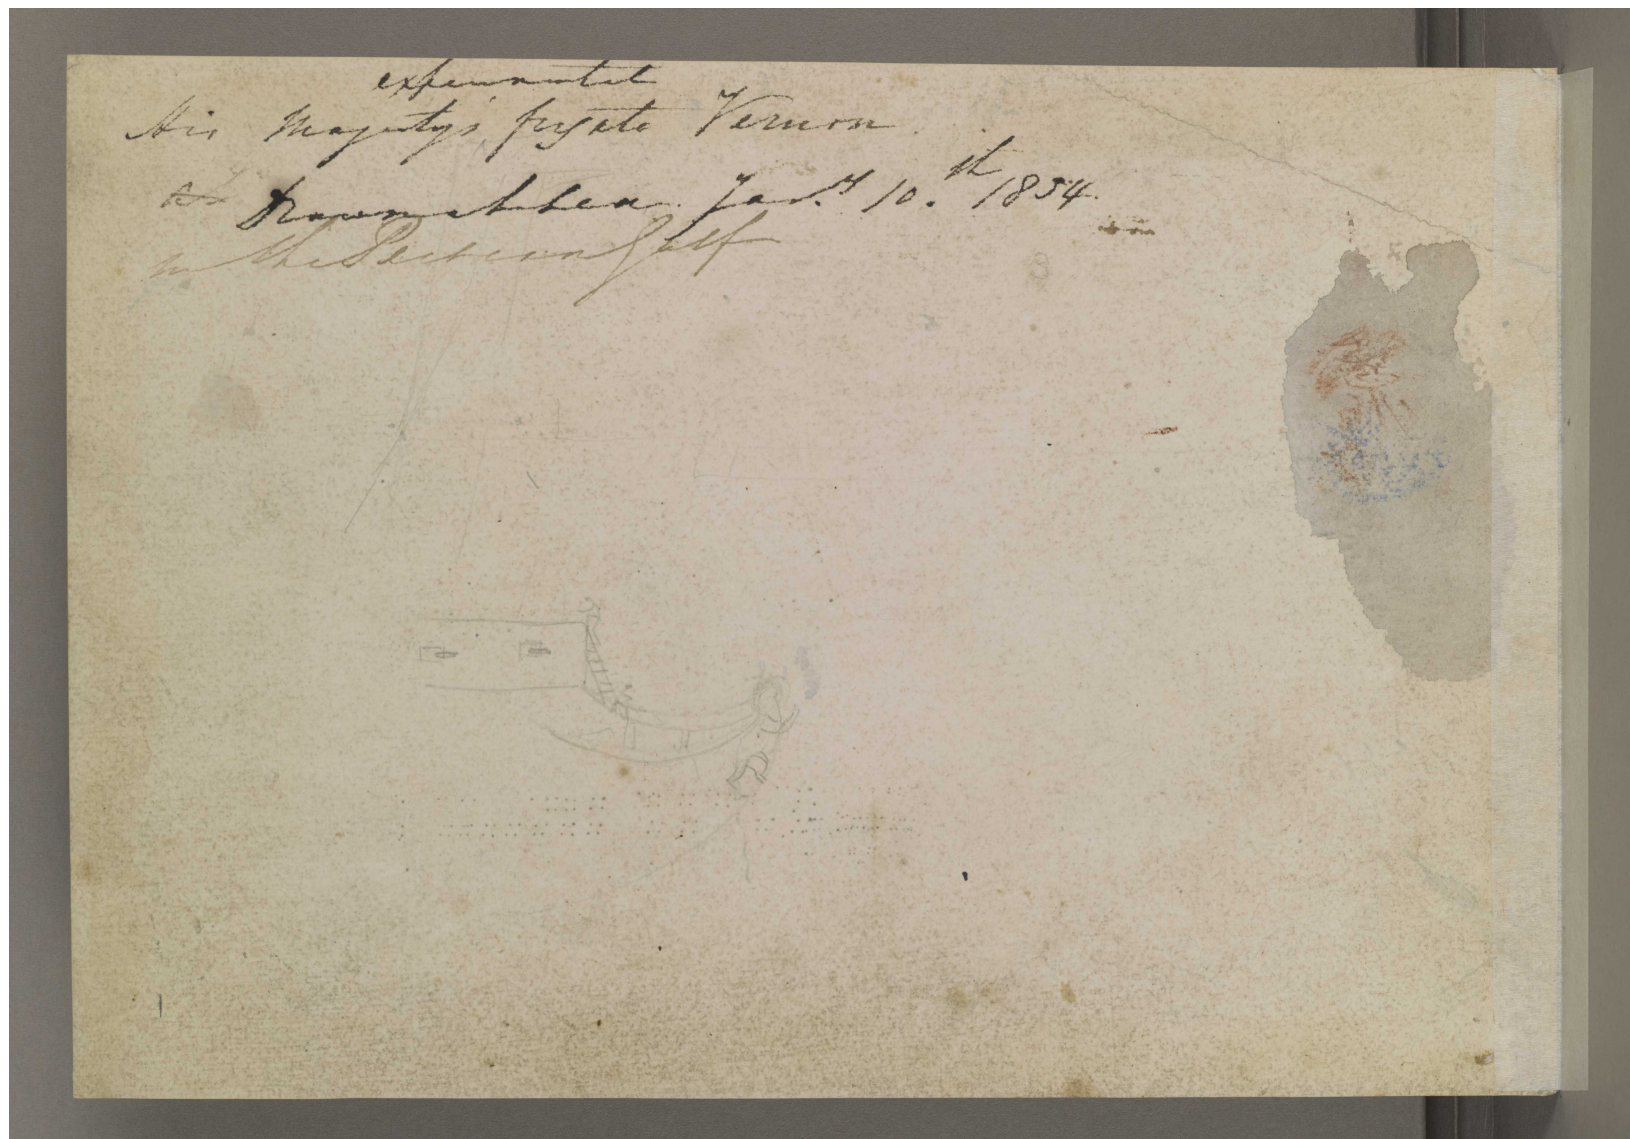 experimental
His Majesty's frigate Vernon.
at Drawn at Sea. Jan.y 10.th 1854.
in the Persian Gulf